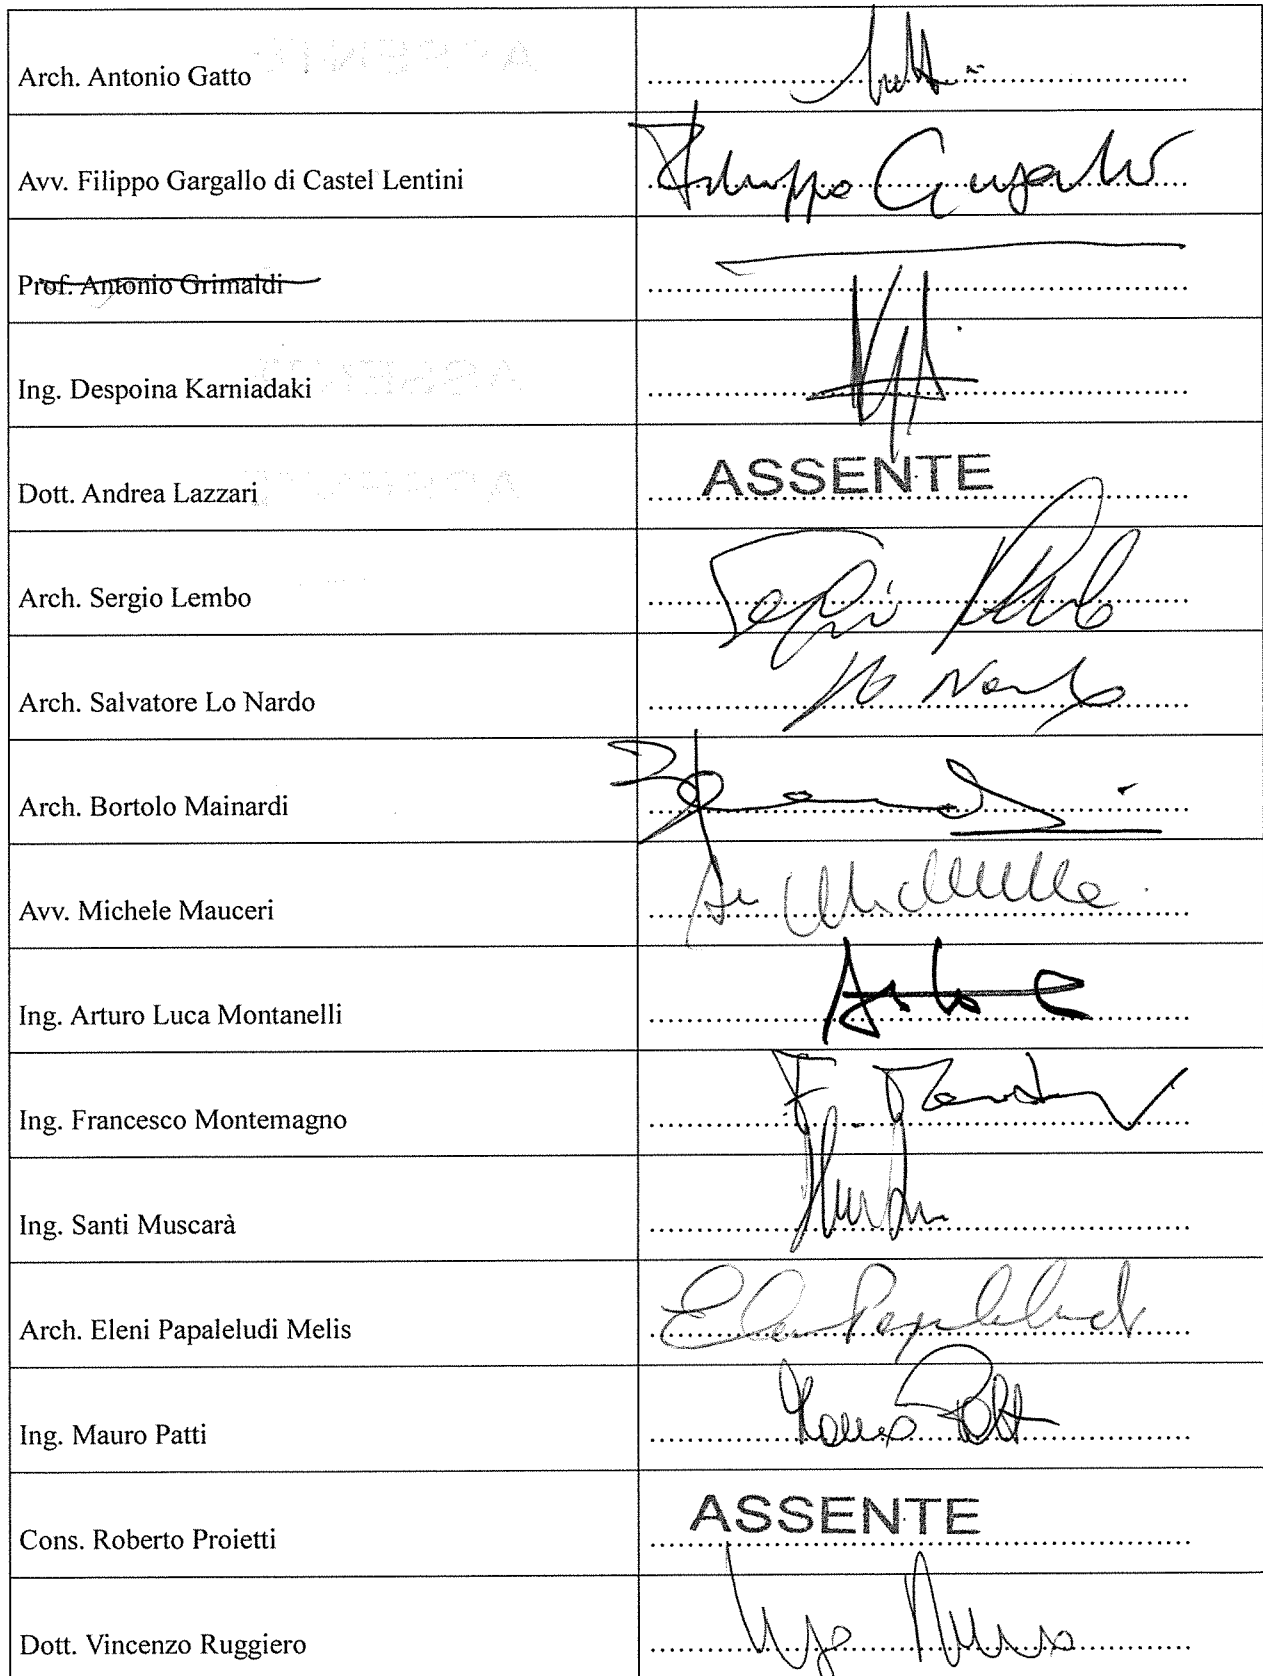 Arch. Antonio Gatto
Avv. Filippo Gargallo di Castel Lentini
Filippo Gargallo
Prof. Antonio Grimaldi
Ing. Despoina Karniadaki
Dott. Andrea Lazzari
ASSENTE
Arch. Sergio Lembo
Sergio
Arch. Salvatore Lo Nardo
Lo Nardo
Arch. Bortolo Mainardi
Avv. Michele Mauceri
Ing. Arturo Luca Montanelli
Ing. Francesco Montemagno
Ing. Santi Muscarà
Arch. Eleni Papaleludi Melis
Eleni Papaleludi
Ing. Mauro Patti
Mauro Patti
Cons. Roberto Proietti
ASSENTE
Dott. Vincenzo Ruggiero